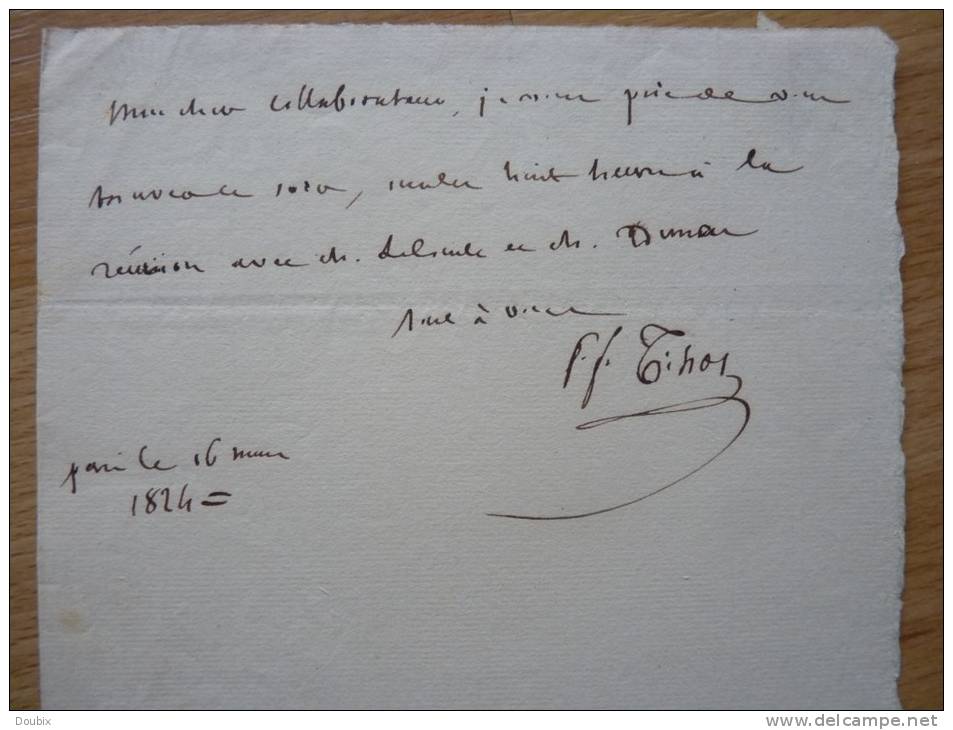 Mon cher collaborateur, je vous prie de vous
trouver ce soir, sur les huit heures à la
réunion avec M. et M.
tout à vous
P. f. Tissot
paris le 16 mars
1824 =
Doubix
www.delcampe.net